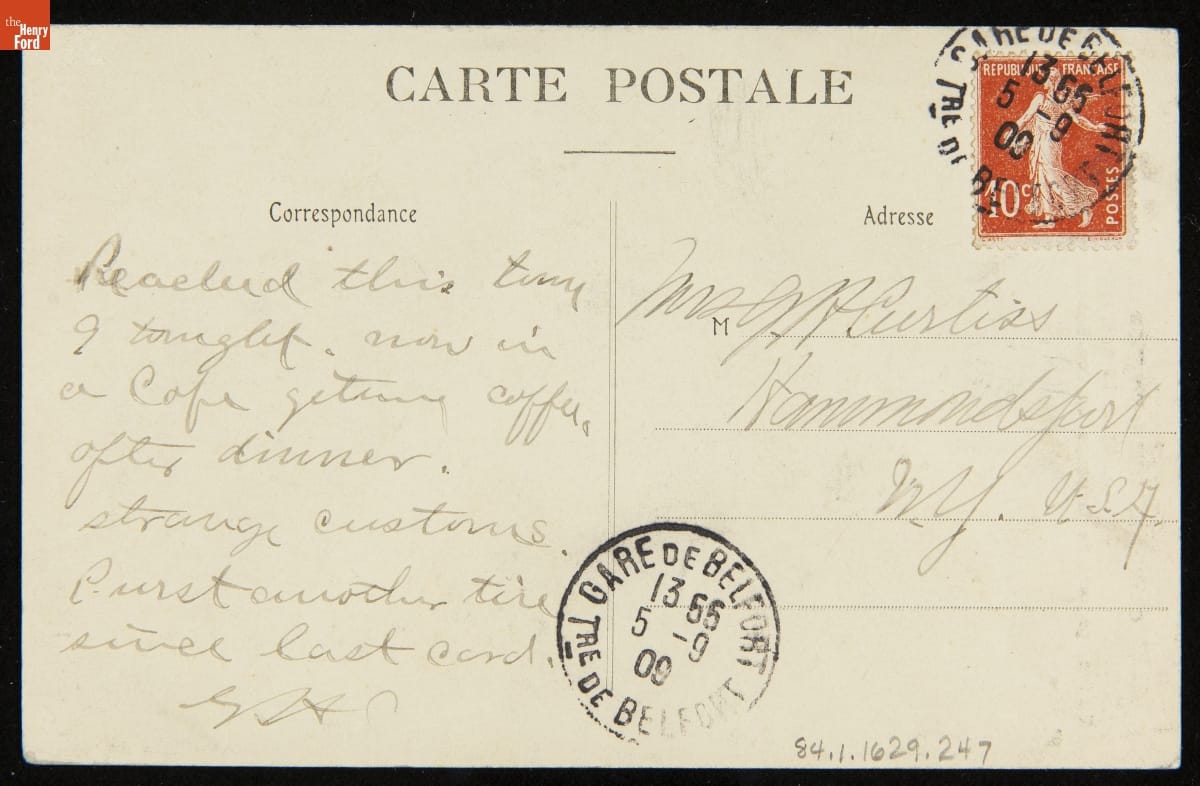 the
Henry
Ford
CARTE POSTALE
Correspondance
Adresse
GARE DE BELFORT
13 55
5 -9
09
TRE DE BE
REPUBLIQUE FRANÇAISE
10 c
POSTES
Reached this town
tonight. now in
a Cafe geting coffee,
after dinner.
strange customs.
Burst another tire
since last card.
GHC
M
Mrs G H Curtiss
Hammondsport
NY. U.S.A.
GARE DE BELFORT
13 55
5 -9
09
TRE DE BELFORT
84.1.1629.247